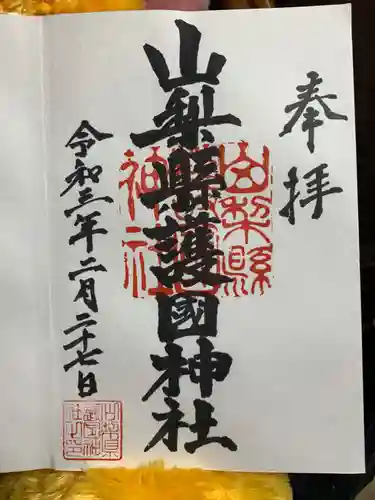 奉拝
山梨縣護國神社
山梨縣護國神社
令和三年二月二十七日